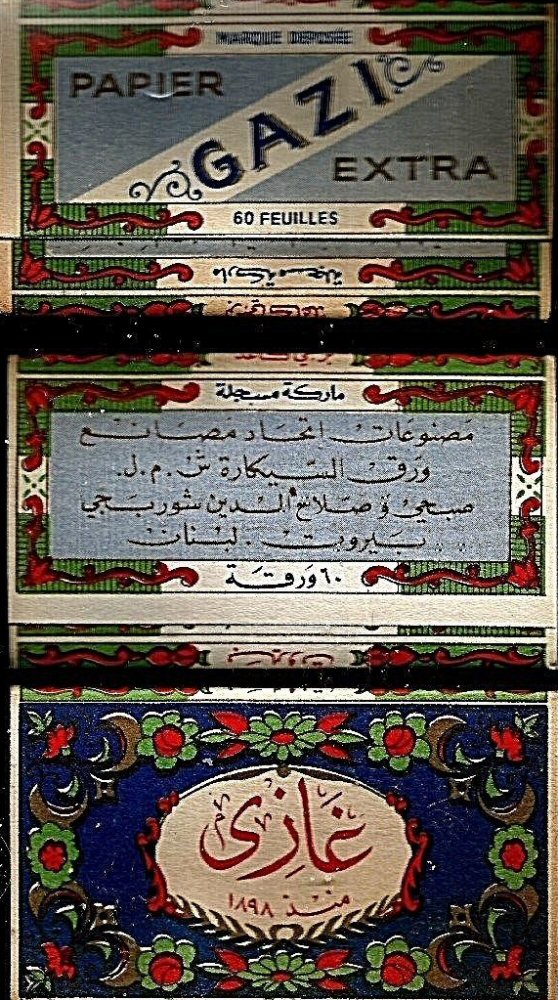 MARQUE DEPOSÉE
PAPIER
GAZI
EXTRA
60 FEUILLES
ماركة مسجلة
ماركة مسجلة
مصنوعات اتحاد مصانع
ورق السيكارة ش.م.ل.
صبحي و صلاح الدين شوربجي
بيروت . لبنان
٦٠ ورقة
غازى
منذ ١٨٩٨